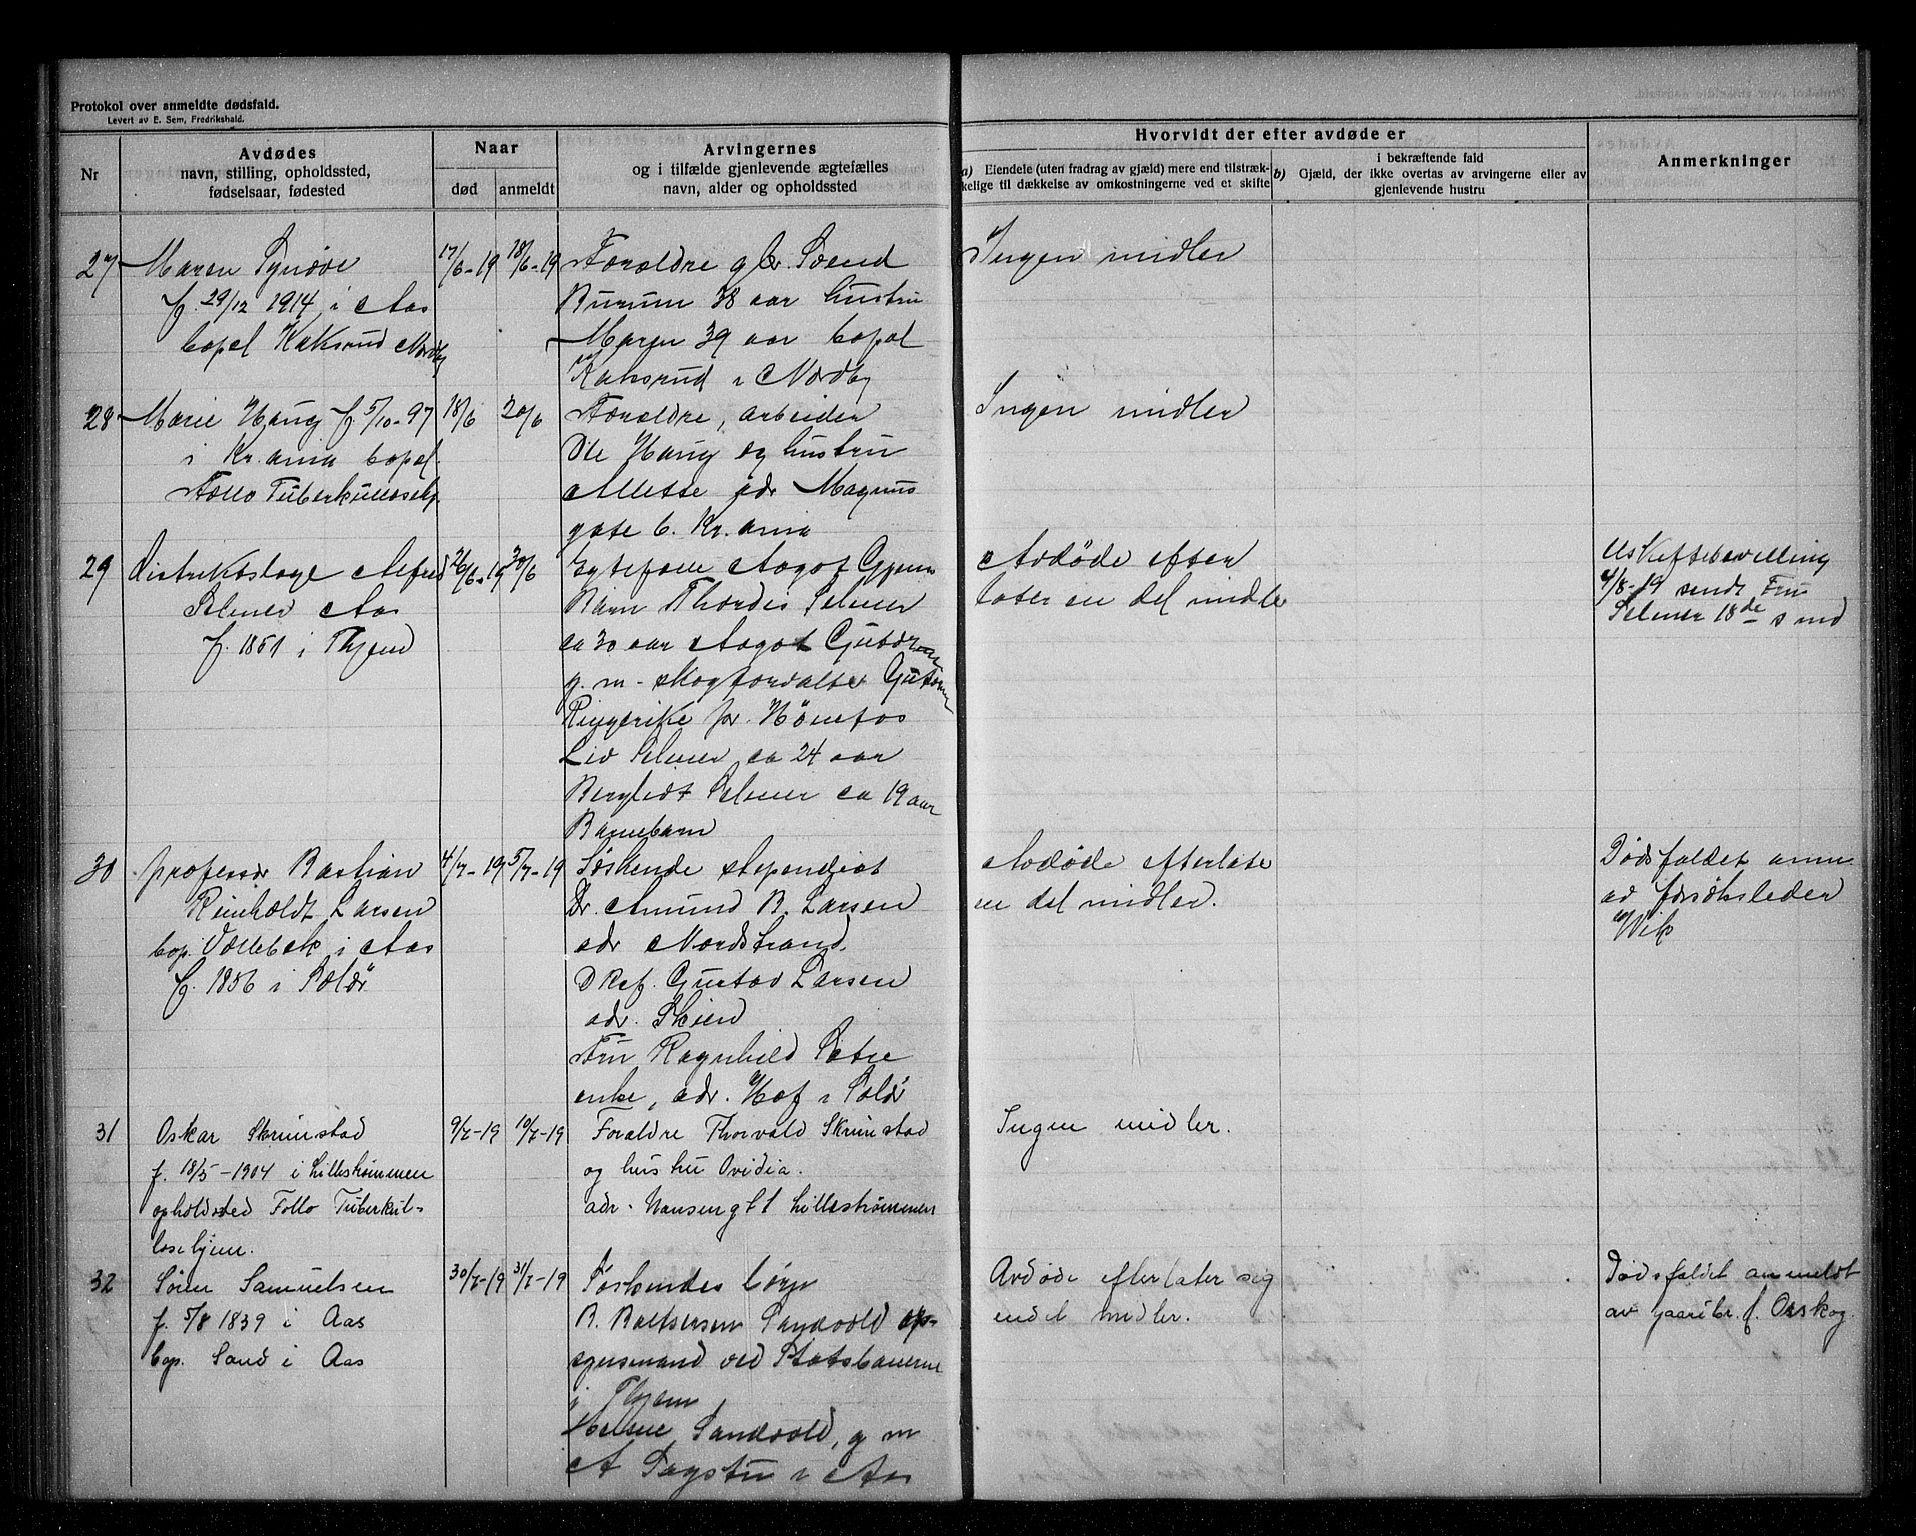 Protokol over anmeldte dødsfald.
Levert av E. Sem, Fredrikshald.
Nr
Avdødes
navn, stilling, opholdssted,
fødselsaar, fødested
Naar
død
anmeldt
Arvingernes
og i tilfælde gjenlevende ægtefælles
navn, alder og opholdssted
Hvorvidt der efter avdøde er
a) Eiendele (uten fradrag av gjæld) mere end tilstræk-
kelige til dækkelse av omkostningerne ved et skifte
i bekræftende fald
b) Gjæld, der ikke overtas av arvingerne eller av
gjenlevende hustru
Anmerkninger
27
Maren Synøve
f. 29/12 1914 i Aas
bopel Kaksrud Nordby
17/6-19
18/6-19
Foræld­re gbr. Svend
Burum 38 aar hustru
Maren 39 aar bopel
Kaksrud i Nordby
Ingen midler
28
Marie Haug f. 5/10-97
i Kr.ania bopel
Follo Tuberkulosehj.
18/6
20/6
Forældre, arbeider
Ole Haug og hustru
Mette adr Magnus
gate 6. Kr.ania
Ingen midler
29
Distriktslæge Alfred
Selmer Aas
f. 1851 i
26/6-19
30/6
Egtefælle Aagot
Barn Thordis Selmer
ca 30 aar Aagot
g. m. skogforvalter
Ringerike pr. Hønefos
Liv Selmer ca 24 aar
Bergliot Selmer ca 19 aar
Barnebarn
Avdøde efter
later en del midler
Uskiftebevilling
4/8-19 sendt Fru
Selmer 18de s md
30
professor Bastian
Reinholdt Larsen
bop. Vollebek i Aas
f. 1856 i Solør
4/7-19
5/7-19
Søskende stipendiat
Dr. Amund B. Larsen
adr Nordstrand.
Gustav Larsen
adr. Skien
Fru Ragnhild Sætre
enke, adr. Hof i Solør
Avdøde efterlate
en del midler.
Dødsfaldet anm
av forsøksleder
Vik
31
Oskar Skrimstad
f. 18/5-1904 i Lillestrømmen
opholdssted Follo Tuberkul-
losehjem.
9/7-19
10/7-19
Forældre Thorvald Skrimstad
og hustru Ovidia.
adr. Nansengt 1 Lillestrømmen
Ingen midler.
32
Søren Samuelsen
f. 5/8 1839 i Aas
bop. Sand i Aas
30/7-19
31/7-19
Søskendes børn
B. Baltsersen Sandvold op-
synsmand ved Statsbanerne
i
Helene Sandvold, g m
A Sagstu i Aas
Avdøde efterlater sig
endel midler.
Dødsfaldet anmeldt
av gaardbr. f. Osskog